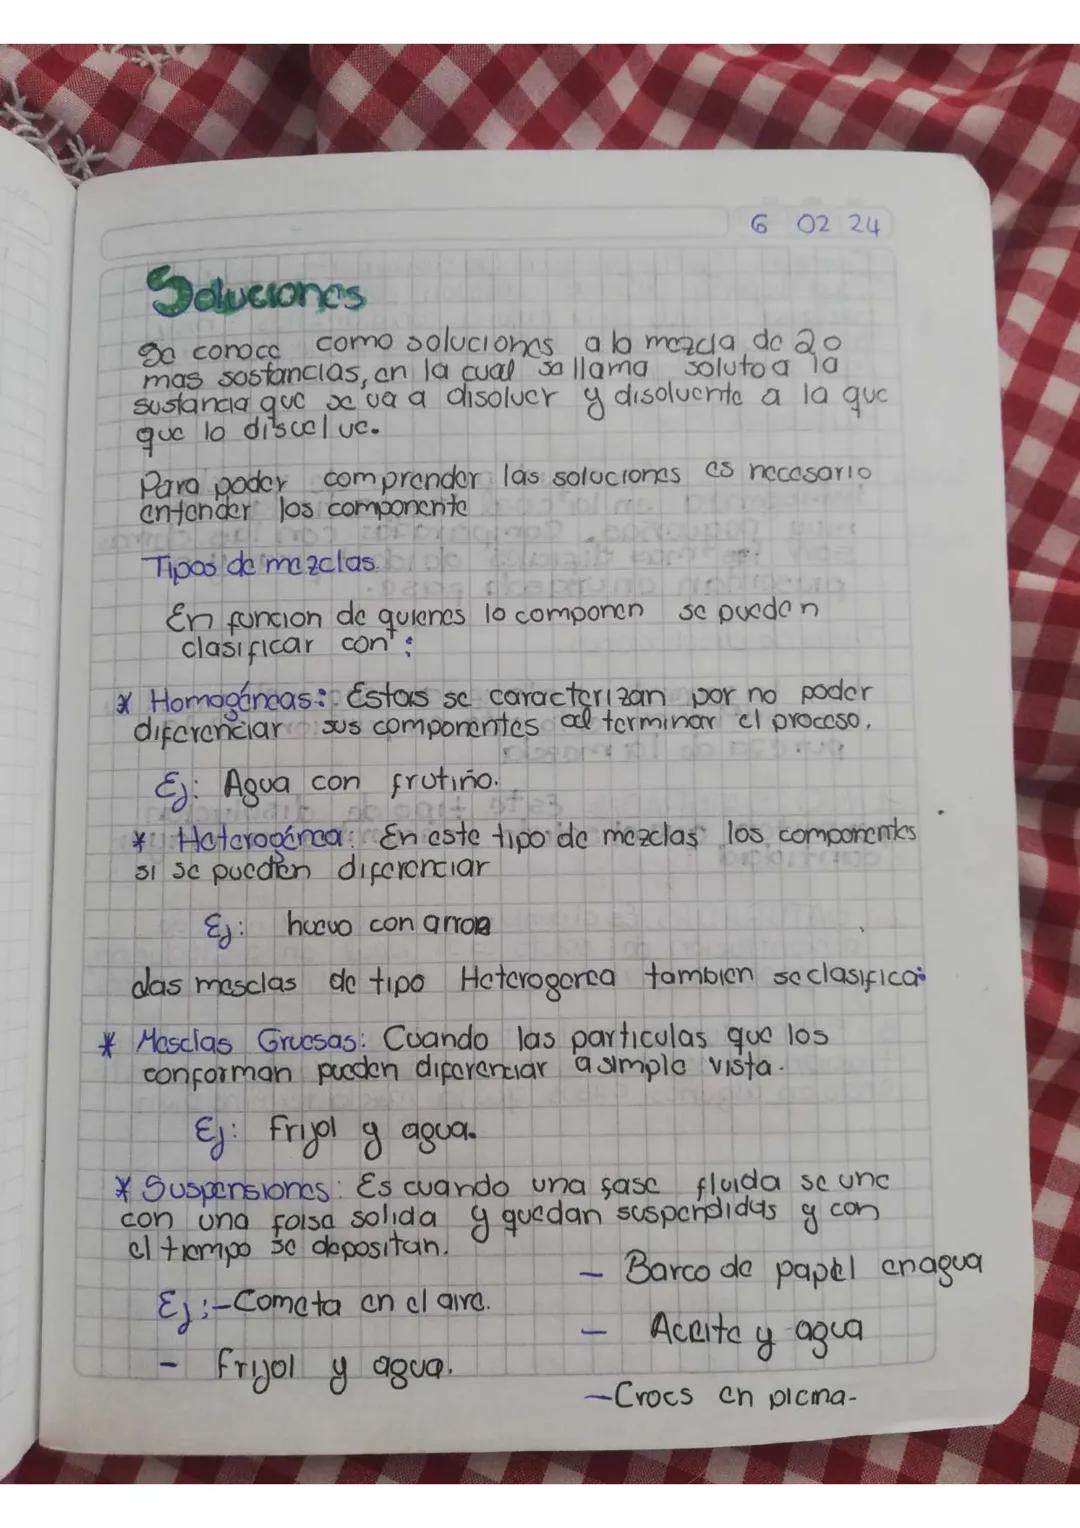 6 02 24
Soluciones
Se conoce como soluciones a la mezcla de 2 o
mas sostancias, en la cual se llama soluto a la
sustancia que se va a disolver y disolvente a la que
que lo discelve.
Para poder comprender las soluciones es necesario
entender los componente
Tipos de mezclas.
En funcion de quienes lo componen se pueden
clasificar con :
* Homogéneas: Estas se caracterizan por no poder
diferenciar sus componentes al terminar el proceso.
Ej: Agua con frutiño.
* Heterogénea: En este tipo de mezclas los componentes
si se pueden diferenciar
Ej: huevo con arroz
Las mesclas de tipo Heterogenea tambien se clasifica:
* Mesclas Gruesas: Cuando las particulas que los
conforman pueden diferenciar a simple vista.
Ej: Frijol y agua.
* Suspensiones: Es cuando una fase fluida se une
con una foisa solida y quedan suspendidas y con
el tiempo se depositan.
- Barco de papel en agua
Ej:-Cometa en el aire.
- Aceite y agua
- frijol y agua.
-Crocs en